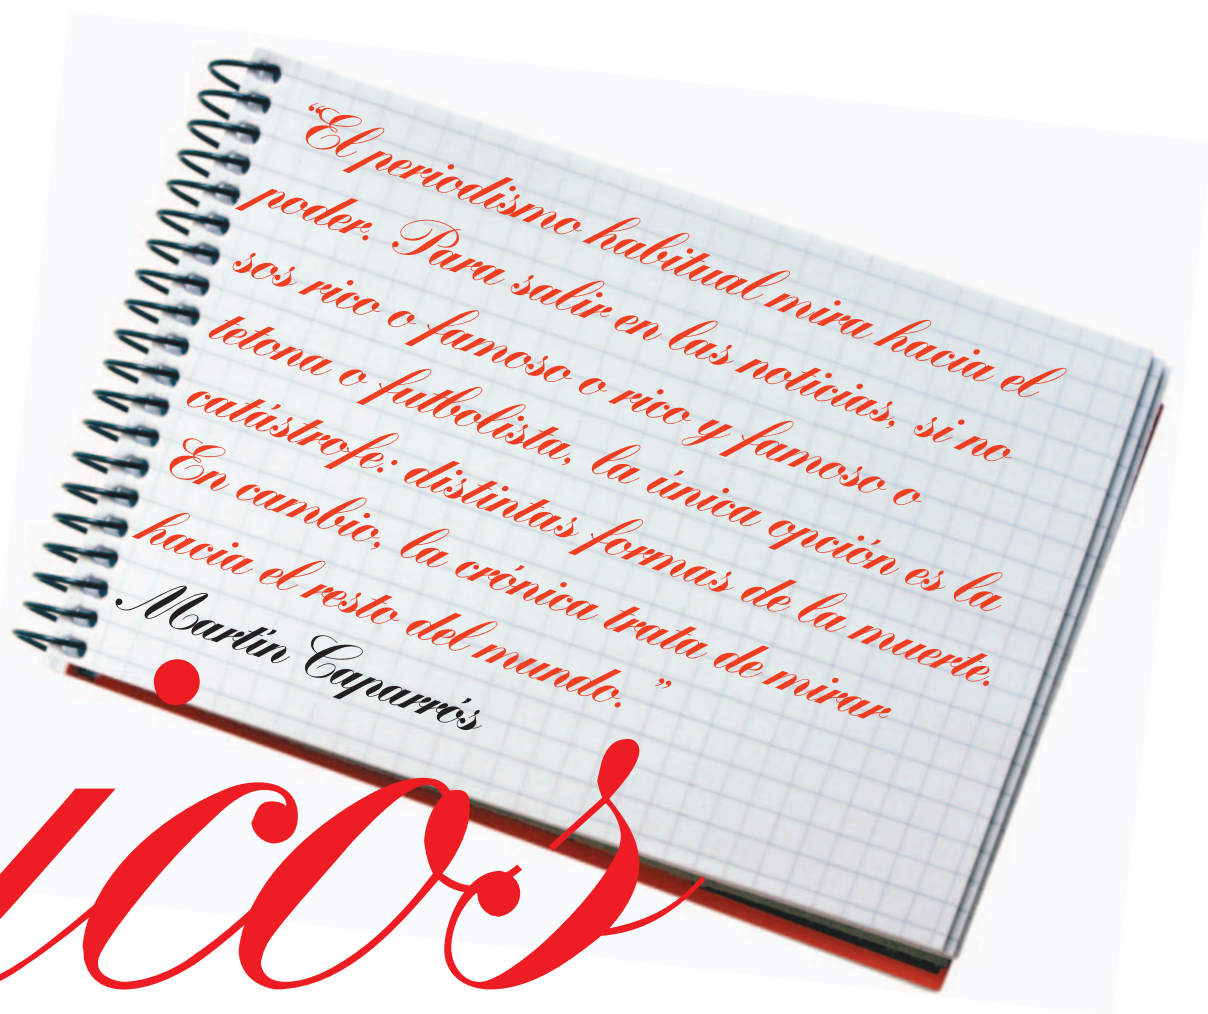 “El periodismo habitual mira hacia el
poder. Para salir en las noticias, si no
sos rico o famoso o rico y famoso o
tetona o futbolista, la única opción es la
catástrofe: distintas formas de la muerte.
En cambio, la crónica trata de mirar
hacia el resto del mundo.”
Martín Caparrós
icos